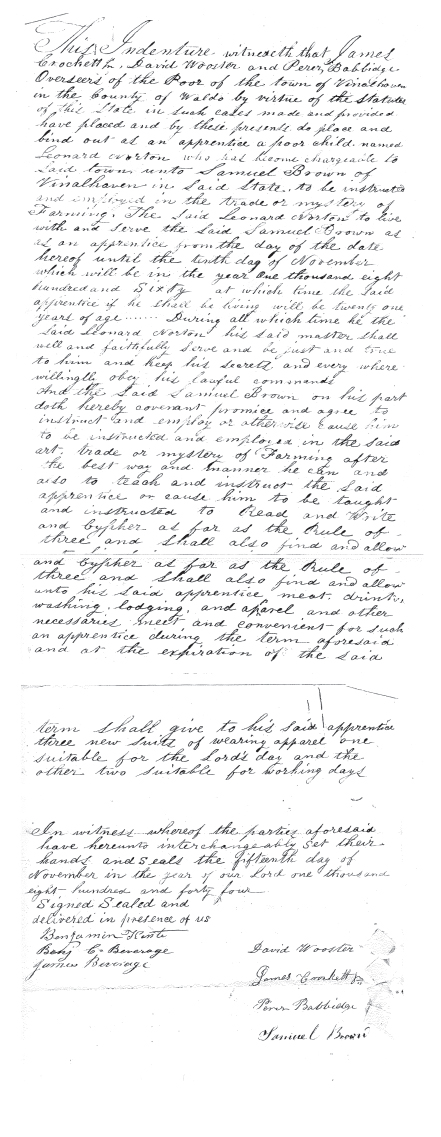 This Indenture witnesseth that James
Crockett Jr. David Wooster and Perez Babbidge
Overseers of the Poor of the town of Vinalhaven
in the County of Waldo by virtue of the statutes
of this State in such cases made and provided
have placed and by these presents do place and
bind out as an apprentice a poor child named
Leonard Norton who has become chargeable to
said town unto Samuel Brown of
Vinalhaven in said State. to be instructed
and employed in the trade or mystery of
Farming. The Said Leonard Norton to live
with and serve the said Samuel Brown as
as an apprentice from the day of the date
hereof until the tenth day of November
which will be in the year One thousand eight
hundred and Sixty at which time the said
apprentice if he shall be living will be twenty one
years of age ...... During all which time he the
said Leonard Norton his said master shall
well and faithfully serve and be just and true
to him and keep his secrets and every where
willingly obey his lawful commands
And the Said Samuel Brown on his part
doth hereby covenant promice and agree to
instruct and employ or otherwise cause him
to be instructed and employed in the said
art, trade or mystery of Farming after
the best way and manner he can and
also to teach and instruct the said
apprentice or cause him to be taught
and instructed to Read and Write
and Cypher as far as the Rule of
three and shall also find and allow
and Cypher as far as the Rule of
three and shall also find and allow
unto his said apprentice meat. drink,
washing, lodging, and aparel and other
necessaries meet and convenient for such
an apprentice during the term aforesaid
and at the expiration of the said
term shall give to his said apprentice
three new suits of wearing apparel one
suitable for the Lord's day and the
other two suitable for working days
In witness whereof the parties aforesaid
have hereunto interchangeably set their
hands and seals the fifteenth day of
November in the year of our Lord one thousand
eight hundred and forty four
Signed Sealed and
delivered in presence of us
Benjamin
Benj C. Beverage
James Beverage
David Wooster
James Crockett Jr
Perez Babbidge
Samuel Brown